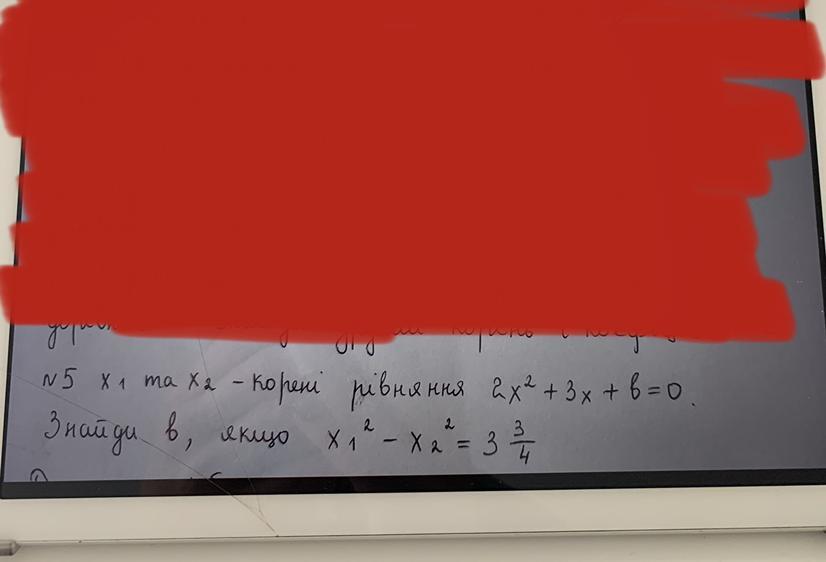 корінь і
№5 x₁ та x₂ – корені рівняння 2x² + 3x + b = 0.
Знайди b, якщо x₁² – x₂² = 3 3/4